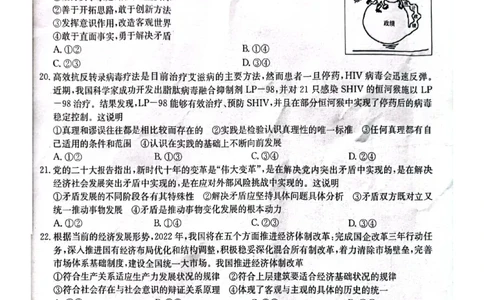 ②善于开拓思路,敢于创新方法
③发挥意识作用,改造客观世界
④敢于直面事实,勇于解决矛盾
A.①② B.①④
C.②③ D.③④
政绩
20.高效抗反转录病毒疗法是目前治疗艾滋病的主要方法,然而患者一旦停药,HIV 病毒会迅速反弹。
近期,我国科学家成功开发出脂肽病毒融合抑制剂 LP—98,并对 21 只感染 SHIV 的恒河猴施以 LP
—98 治疗。结果发现,LP—98 能够有效治疗、预防 SHIV,并且在部分恒河猴中实现了停药后的病毒
稳定控制。这说明
①真理和谬误往往都是相比较而存在的 ②实践是检验认识真理性的唯一标准 ③任何真理都有自
己适用的条件和范围 ④认识在实践的基础上不断向前发展
A.①② B.①③ C.③④ D.②④
21.党的二十大报告指出,新时代十年的变革是“伟大变革”,是在解决党内突出矛盾中实现的,是在解决
经济社会发展突出矛盾中实现的,是在应对外部风险挑战中实现的。这说明
①矛盾发展的不同阶段各有其特殊性 ②解决矛盾应坚持具体问题具体分析 ③矛盾双方既对立又
统一推动事物发展 ④矛盾是推动事物变化发展的根本动力
A.①② B.①④ C.②③ D.③④
22.根据当前的经济发展形势,2022 年,我国将在五个方面推进经济体制改革:完成国企改革三年行动任
务,深入推进国有经济布局优化和结构调整,积极稳妥深化混合所有制改革,着力清除市场壁垒,完善
市场体系基础制度,建设全国统一大市场。我国推进经济体制改革
①符合生产关系适应生产力发展状况的规律 ②符合上层建筑要适合经济基础状况的规律
③符合社会存在与社会意识的辩证关系原理 ④符合主观与客观的具体的历史的统一